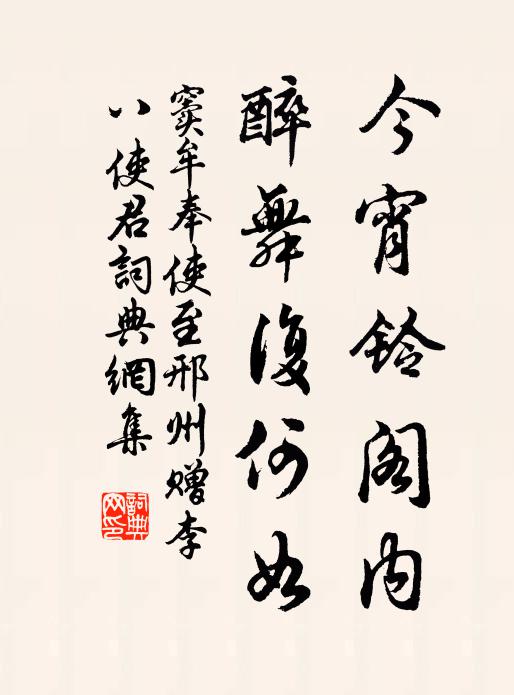 今宵鈴阁内
醉舞復何如
窦牟奉使至邢州赠李
八使君詞典網集
詞典
网印